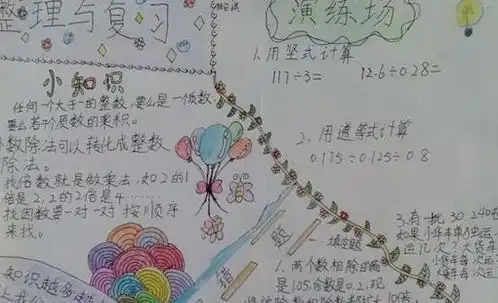 整理与复习
小知识
任何一个大于一的整数,要么是一个质数
要么若干质数的乘积。
小数除法可以转化成整数
除法。
找倍数就是做乘法,如2的1
倍是2,2的2倍是4……
找因数要一对一对按顺序
来找。
知识越多越
演练场
1.用竖式计算
117÷3= 12.6÷0.28=
2、用递等式计算
0.175÷0.125÷0.8
3.有一批30.240
如果小车单独运
运几次?大货车
一填空题
1.两个数相除
是105,余数是0.2,现